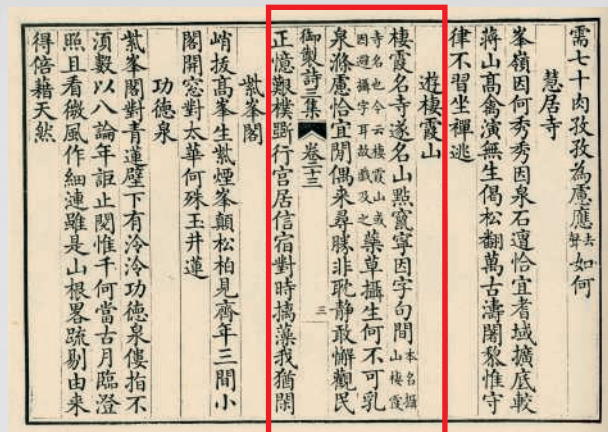 需七十肉孜孜為慮應去聲如何
慧居寺
峯嶺因何秀秀因泉石邅恰宜耆域擴底較
蔣山高禽演無生偈松翻萬古濤闍黎惟守
律不習坐禪逃
遊棲霞山
棲霞名寺遂名山點竄寧因字句間本名攝山棲霞
寺名也今云棲霞山或因避攝字耳故戲及之藥草攝生何不可乳
泉滌慮恰宜閒偶来尋勝非耽静敢懈觀民
御製詩三集 卷二十三 三
正憶艱樸斵行宫居信宿對時摛藻我猶閑
紫峯閣
峭拔髙峯生紫煙峯巔松柏見齊年三間小
閣開窓對太華何殊玉井蓮
功德泉
紫峯閣對青蓮壁下有泠泠功德泉僂指不
湏數以八論年詎止閱惟千何當古月臨澄
照且看微風作細漣雖是山根畧疏剔由来
得倍藉天然